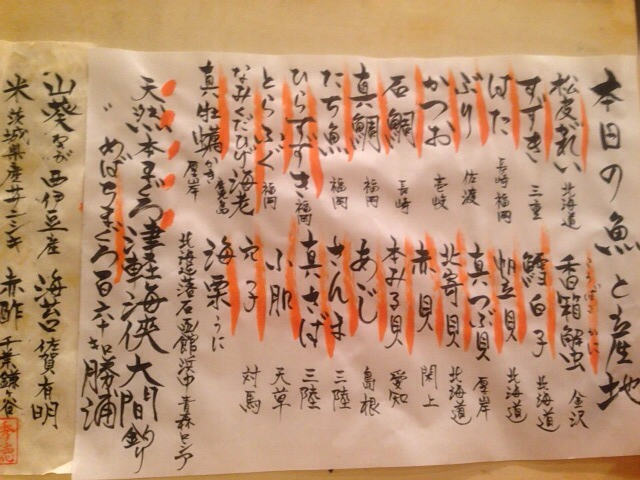 本日の魚と産地
松皮がれい 北海道
すずき 三重
はた 長崎 福岡
ぶり 佐渡
かつお 壱岐
石鯛 長崎
真鯛 福岡
たち魚 福岡
ひらすずき 福岡
とらふぐ 福岡
なみくだひげ海老
真牡蠣 かき 厚岸
香箱蟹 こうばこ かに 金沢
鱈白子 北海道
帆立貝 北海道
真つぶ貝 厚岸
北寄貝 北海道
赤貝 閖上
本みる貝 愛知
あじ 島根
さんま 三陸
真さば 三陸
小肌 天草
穴子 対馬
海栗 うに
北海道 落石 函館 浜中 青森
天然本まぐろ 津軽海峡大間 釣り
〃 めばちまぐろ 百六十キロ 勝浦
山葵 西伊豆産 海苔 佐賀有明
米 茨城県産 ササニシキ 赤酢 千葉鎌ヶ谷